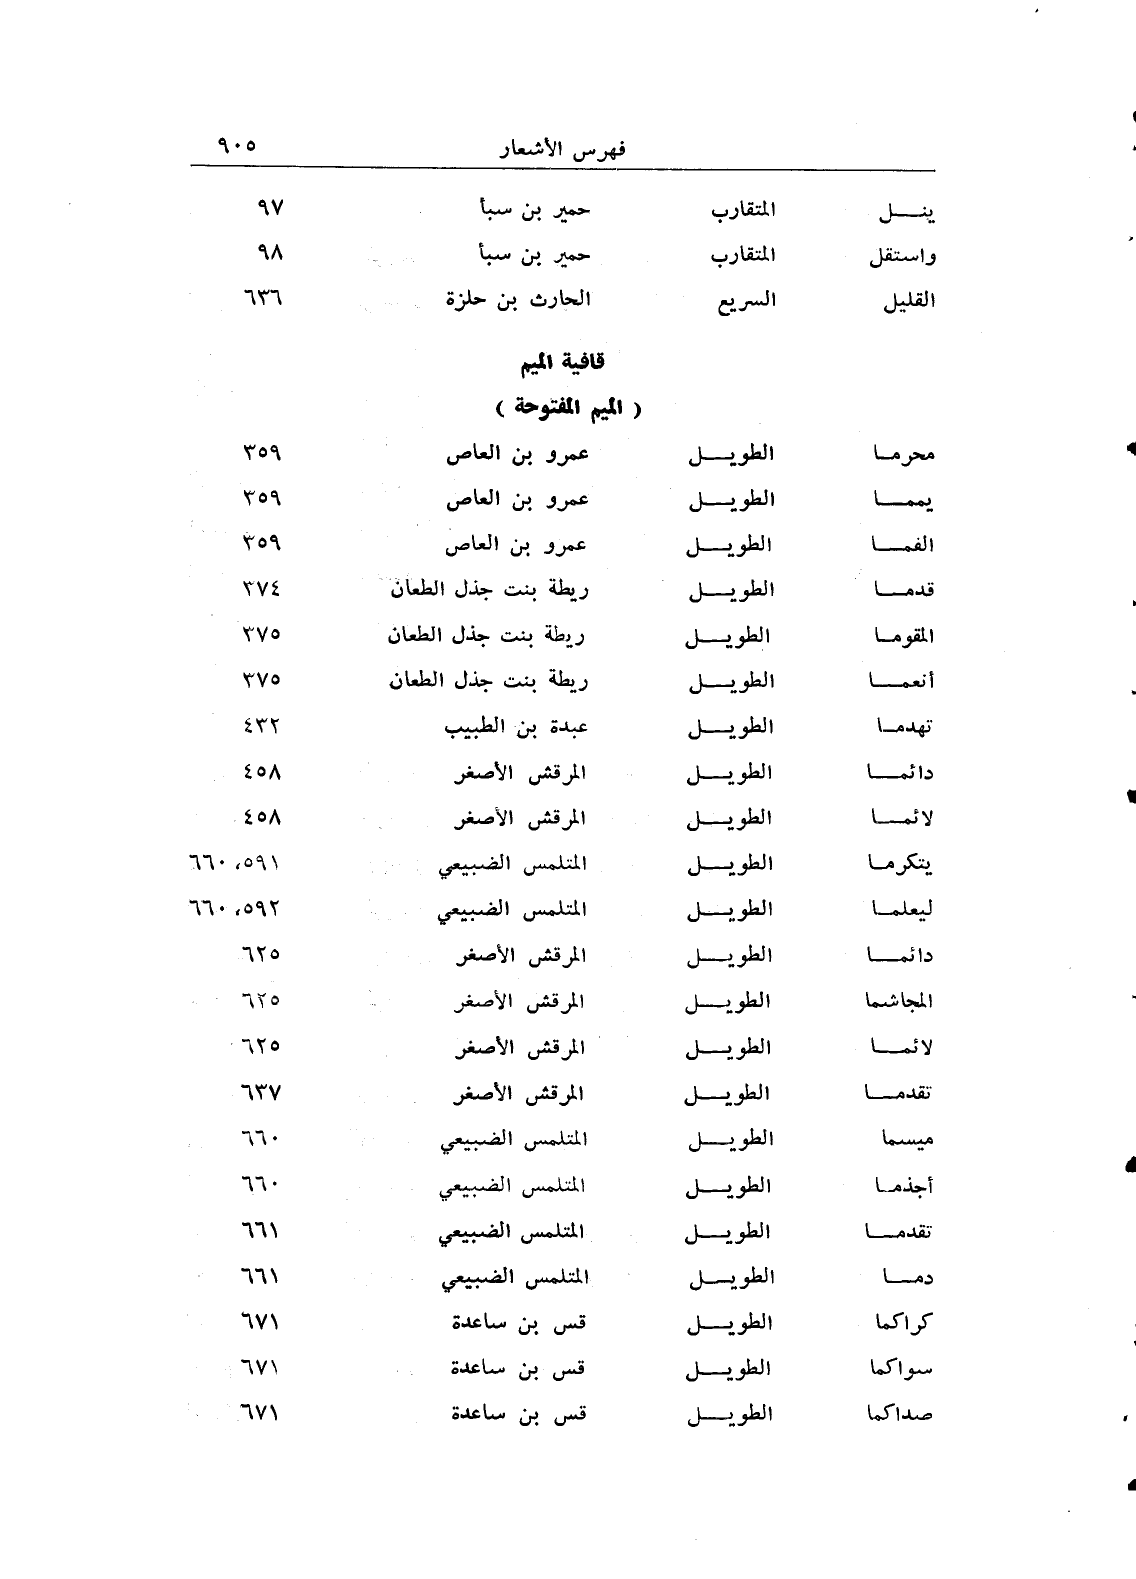 فهرس الأشعار ٩٠٥
ينـــل المتقارب حمير بن سبأ ٩٧
واستقل المتقارب حمير بن سبأ ٩٨
القليل السريع الحارث بن حلزة ٦٣٦
قافية الميم
( الميم المفتوحة )
محرمـا الطويـــل عمرو بن العاص ٣٥٩
يممـــا الطويـــل عمرو بن العاص ٣٥٩
الفمـــا الطويـــل عمرو بن العاص ٣٥٩
قدمـــا الطويـــل ريطة بنت جذل الطعان ٣٧٤
المقومـا الطويـــل ريطة بنت جذل الطعان ٣٧٥
أنعمـــا الطويـــل ريطة بنت جذل الطعان ٣٧٥
تهدمـا الطويـــل عبدة بن الطبيب ٤٣٢
دائمـــا الطويـــل المرقش الأصغر ٤٥٨
لائمـــا الطويـــل المرقش الأصغر ٤٥٨
يتكرمـا الطويـــل المتلمس الضبيعي ٥٩١، ٦٦٠
ليعلمـا الطويـــل المتلمس الضبيعي ٥٩٢، ٦٦٠
دائمـــا الطويـــل المرقش الأصغر ٦٢٥
المجاشما الطويـــل المرقش الأصغر ٦٢٥
لائمـــا الطويـــل المرقش الأصغر ٦٢٥
تقدمـــا الطويـــل المرقش الأصغر ٦٣٧
ميسما الطويـــل المتلمس الضبيعي ٦٦٠
أجذمـا الطويـــل المتلمس الضبيعي ٦٦٠
تقدمـــا الطويـــل المتلمس الضبيعي ٦٦١
دمـــا الطويـــل المتلمس الضبيعي ٦٦١
كراكما الطويـــل قس بن ساعدة ٦٧١
سواكما الطويـــل قس بن ساعدة ٦٧١
صداكما الطويـــل قس بن ساعدة ٦٧١